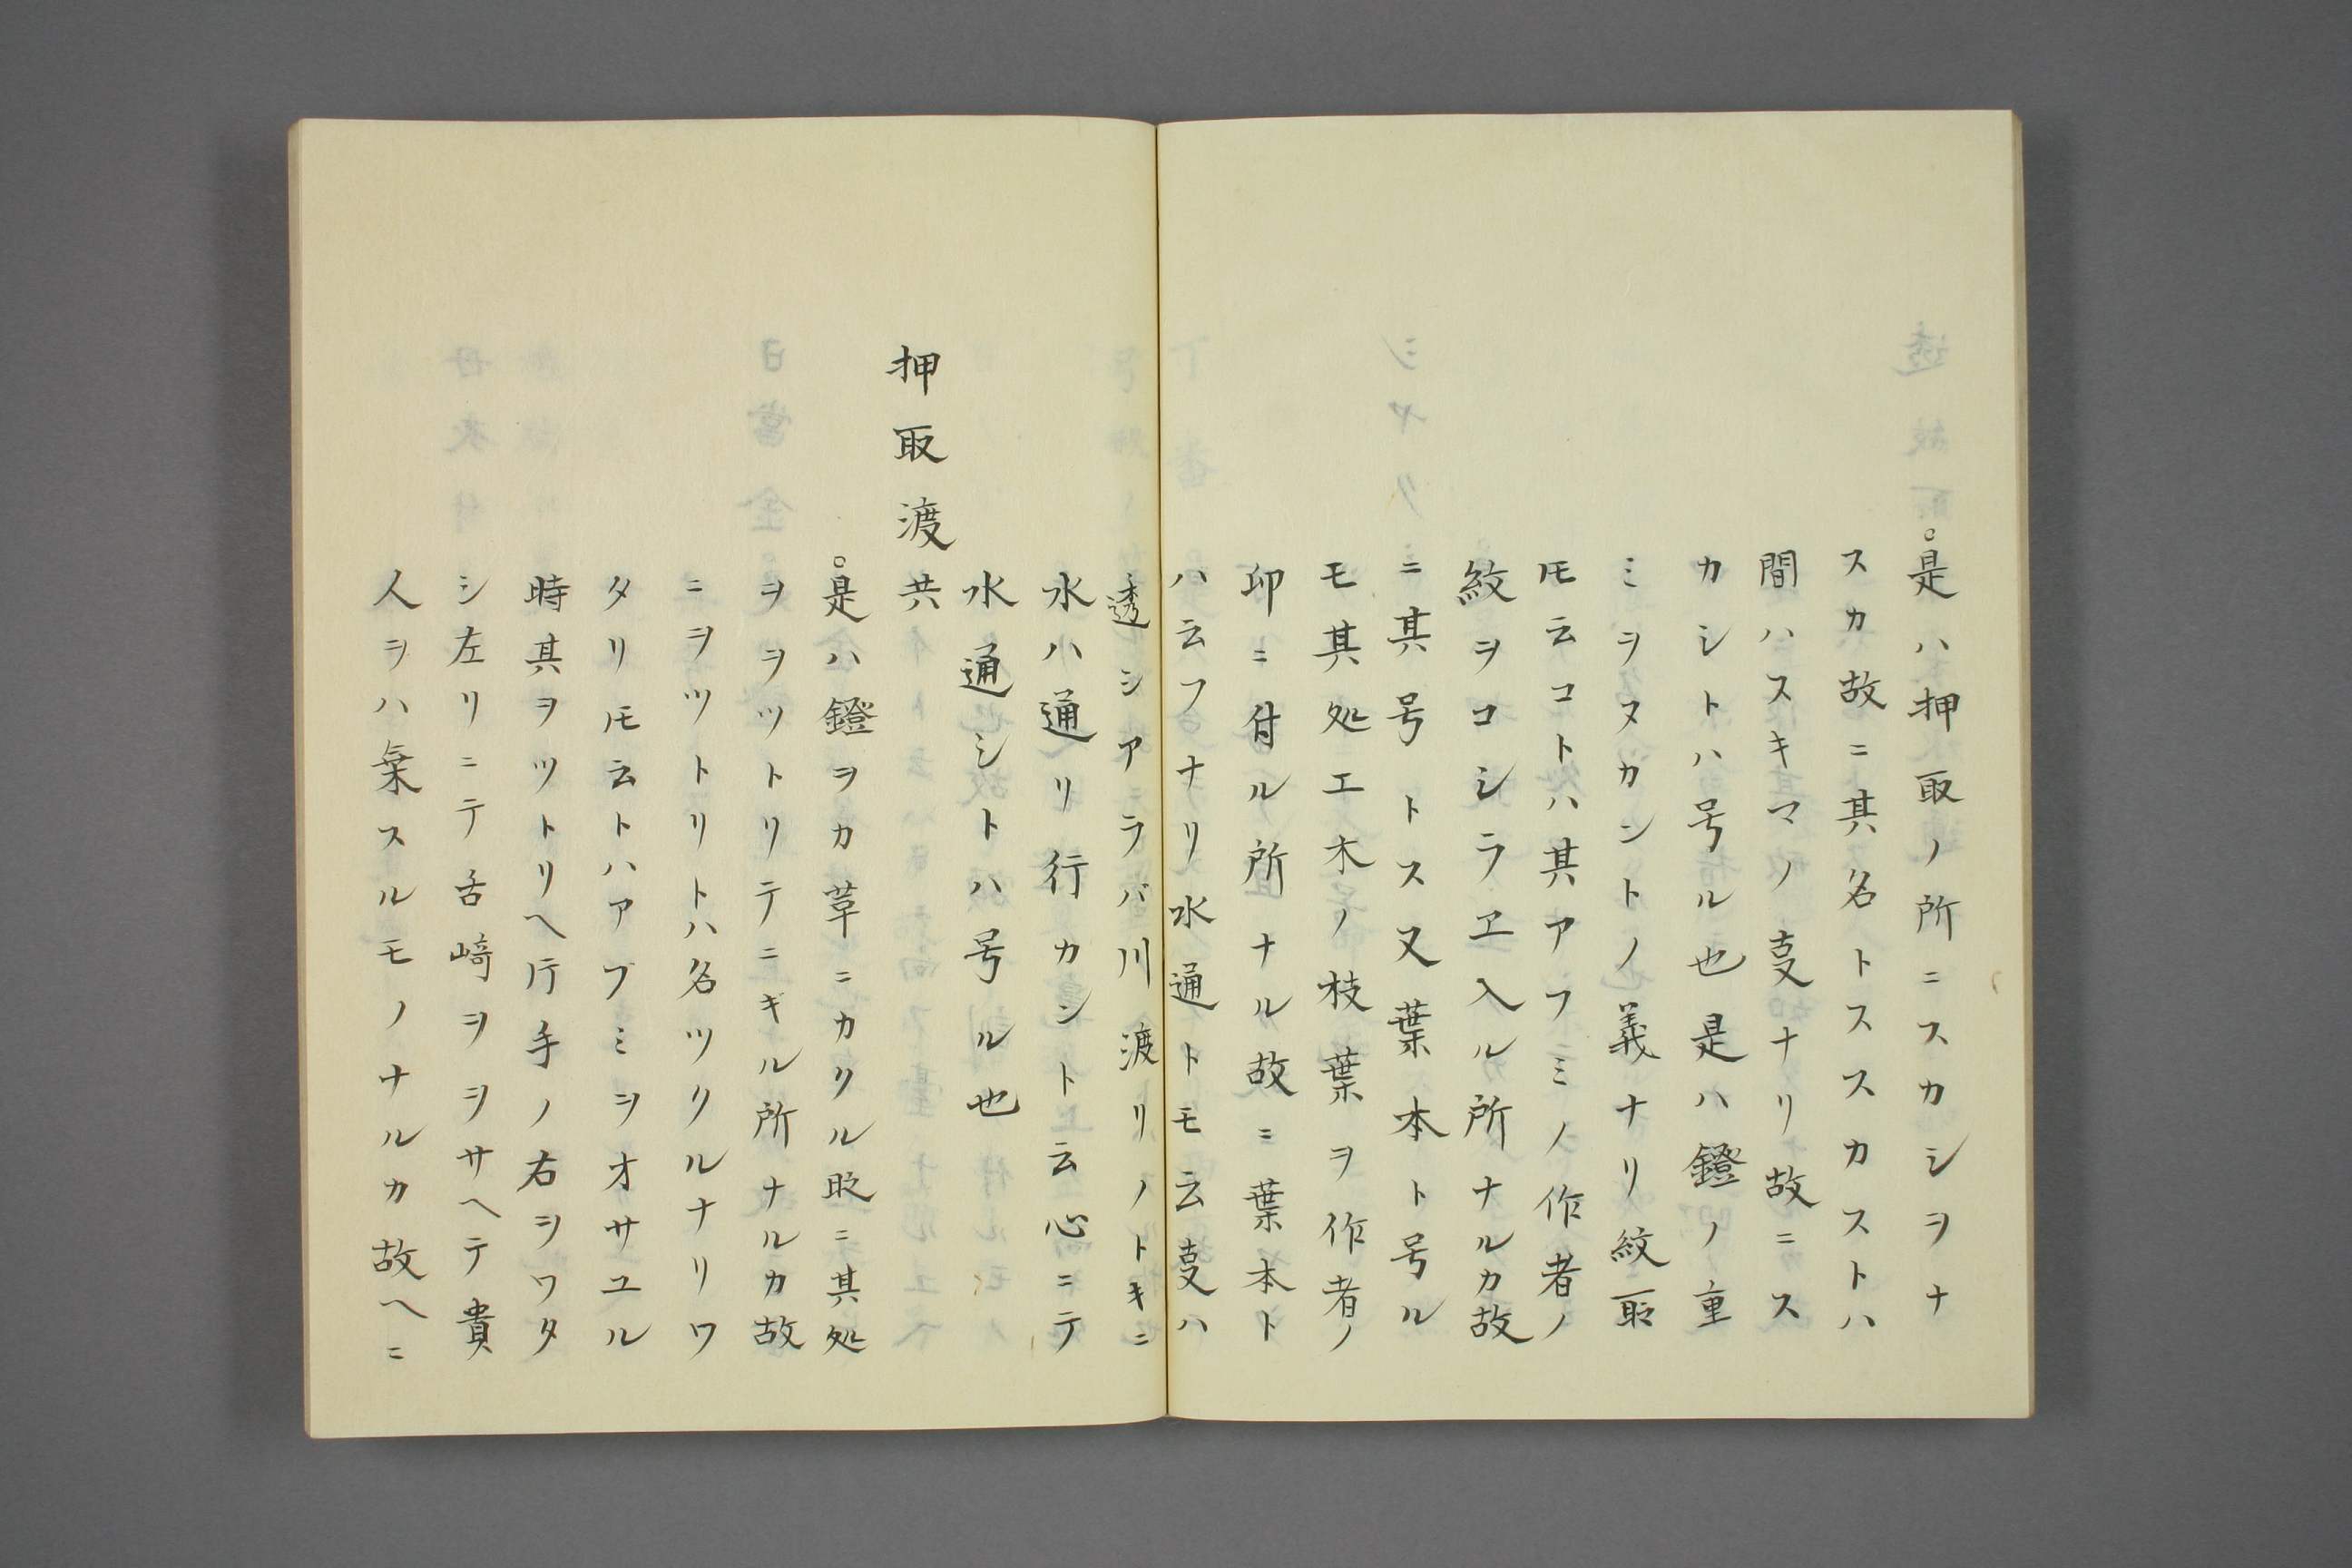 。是ハ押取ノ所ニスカシヲナ
スカ故ニ其名トススカストハ
間ハスキマノ叓ナリ故ニス
カシトハ号ル也是ハ鐙ノ重
ミヲヌカントノ義ナリ紋取
𪜈云コトハ其アフミノ作者ノ
紋ヲコシラヱ入ル所ナルカ故
ニ其号トス又葉本ト号ル
モ其処エ木ノ枝葉ヲ作者ノ
印ニ付ル所ナル故ニ葉本ト
ハ云フナリ水通トモ云叓ハ
透シアラバ川渡リノトキニ
水ハ通リ行カント云心ニテ
水通シトハ号ル也
押取渡共
。是ハ鐙ヲカ草ニカクル時ニ其処
ヲヲツトリテニギル所ナルカ故
ニヲツトリトハ名ツクルナリワ
タリ𪜈云トハアブミヲオサユル
時其ヲツトリヘ行手ノ右ヲワタ
シ左リニテ舌崎ヲヲサヘテ貴
人ヲハ乗スルモノナルカ故ヘニ